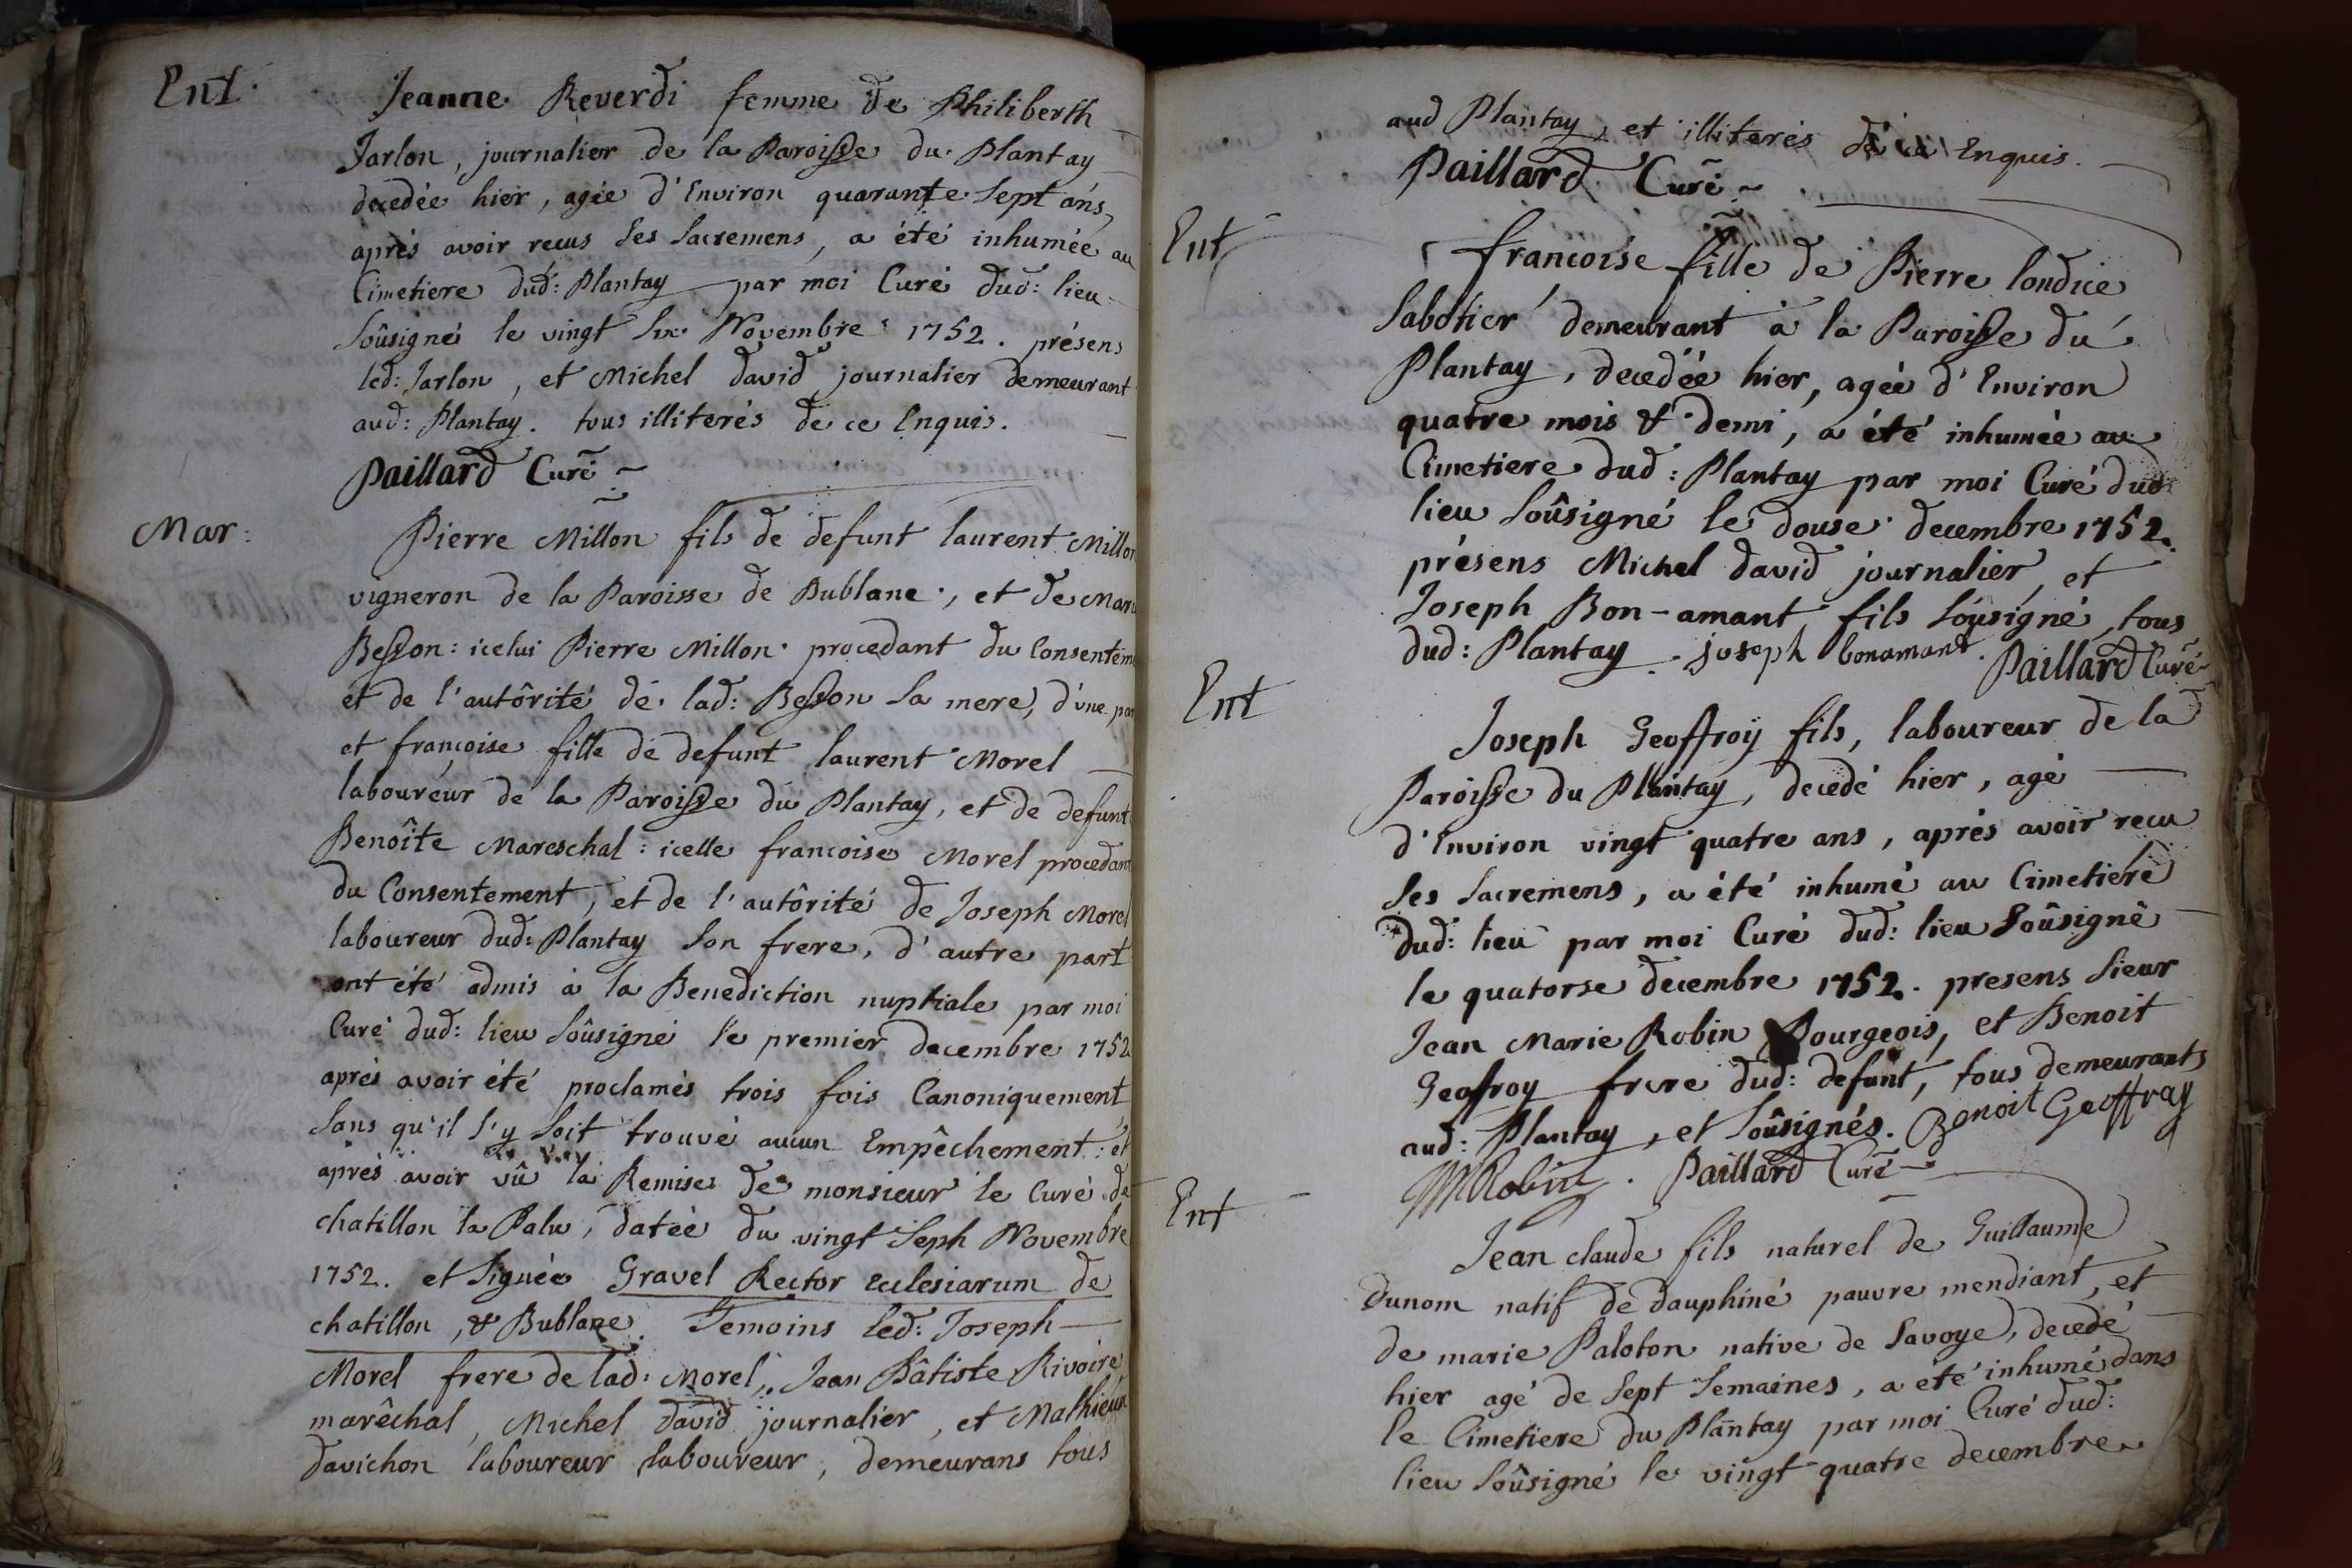 Ent.
Jeanne Reverdi femme de Philiberth
Jarlon, journalier de la Paroisse du Plantay
decedée hier, agée d'Environ quarante sept ans,
aprés avoir recus ses sacremens, a été inhumée au
Cimetiere dud: Plantay par moi Curé dud: lieu
soûsigné le vingt six Novembre 1752. présens
led: Jarlon, et Michel david journalier demeurant
aud: Plantay. tous illiterés de ce Enquis.
Paillard Curé
Mar:
Pierre Millon fils de defunt laurent Millon
vigneron de la Paroisse de Publane, et de Mar
Besson: icelui Pierre Millon procedant du Consentem
et de l'autôrité de lad: Besson sa mere, d'une par
et françoise fille de defunt laurent Morel
laboureur de la Paroisse du Plantay, et de defunt
Benoîte Mareschal: icelle francoise Morel procedant
du Consentement, et de l'autôrité de Joseph Morel
laboureur dud: Plantay son frere, d'autre part
ont été admis à la Benediction nuptiale par moi
Curé dud: lieu soûsigné le premier decembre 1752
aprés avoir été proclamés trois fois Canoniquement
sans qu'il s'y soit trouvé aucun Empêchement: et
aprés avoir vû la Remise de monsieur le Curé de
chatillon la Palu, datée du vingt seph Novembre
1752. et signée Gravel Rector ecclesiarum de
chatillon, & Bublane. Temoins led: Joseph
Morel frere de lad: Morel, Jean Bâtiste Rivoire
marêchal, Michel david journalier, et Mathieu
davichon laboureur laboureur, demeurans tous
aud Plantay, et illiterés de ce Enquis.
Paillard Curé
Ent
francoise fille de Pierre londice
sabotier demeurant à la Paroisse du
Plantay, decedée hier, agée d'Environ
quatre mois & demi, a été inhumée au
Cimetiere dud: Plantay par moi Curé dud
lieu soûsigné le douse decembre 1752.
présens Michel david journalier, et
Joseph Bon-amant fils soúsigné, tous
dud: Plantay. joseph bonamant. Paillard Curé
Ent
Joseph Geoffroÿ fils, laboureur de la
Paroisse du Plantay, decedé hier, agé
d'Environ vingt quatre ans, aprés avoir recu
ses sacremens, a été inhumé au Cimetiere
dud: lieu par moi Curé dud: lieu soûsigné
le quatorse decembre 1752. presens sieur
Jean Marie Robin Bourgeois, et Benoit
Geoffroy frere dud: defunt, tous demeurants
aud: Plantay, et soûsignés. Benoit Geoffray
JMRobin. Paillard Curé
Ent
Jean claude fils naturel de Guillaume
dunom natif de dauphiné pauvre mendiant, et
de marie Paloton native de savoye, decedé
hier agé de sept semaines, a été inhumé dans
le Cimetiere du Plantay par moi Curé dud:
lieu soûsigné le vingt quatre decembre